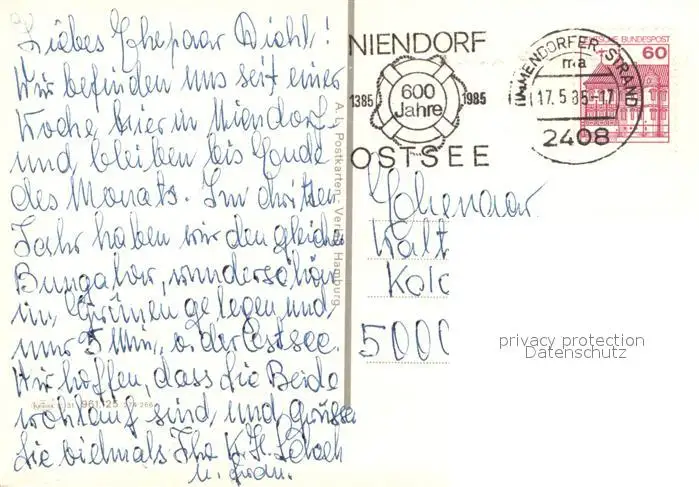 Liebes Ehepaar Diehl!
Wir befinden uns seit einer
Woche hier in Niendorf
und bleiben bis Ende
des Monats. Im dritten
Jahr haben wir den gleichen
Bungalow, wunderschön
im Grünen gelegen und
nur 5 Min. v. der Ostsee.
Wir hoffen, dass Sie Beide
wohlauf sind und grüssen
Sie vielmals Ihr K. H.
u. Frau.
A. L. Postkarten - Verlag Hamburg
961.25
NIENDORF
1385 600 Jahre 1985
OSTSEE
TIMMENDORFER STRAND
ma
17.5.85-17
2408
DEUTSCHE BUNDESPOST
60
Ehepaar
Walt
Köln
5000
privacy protection
Datenschutz